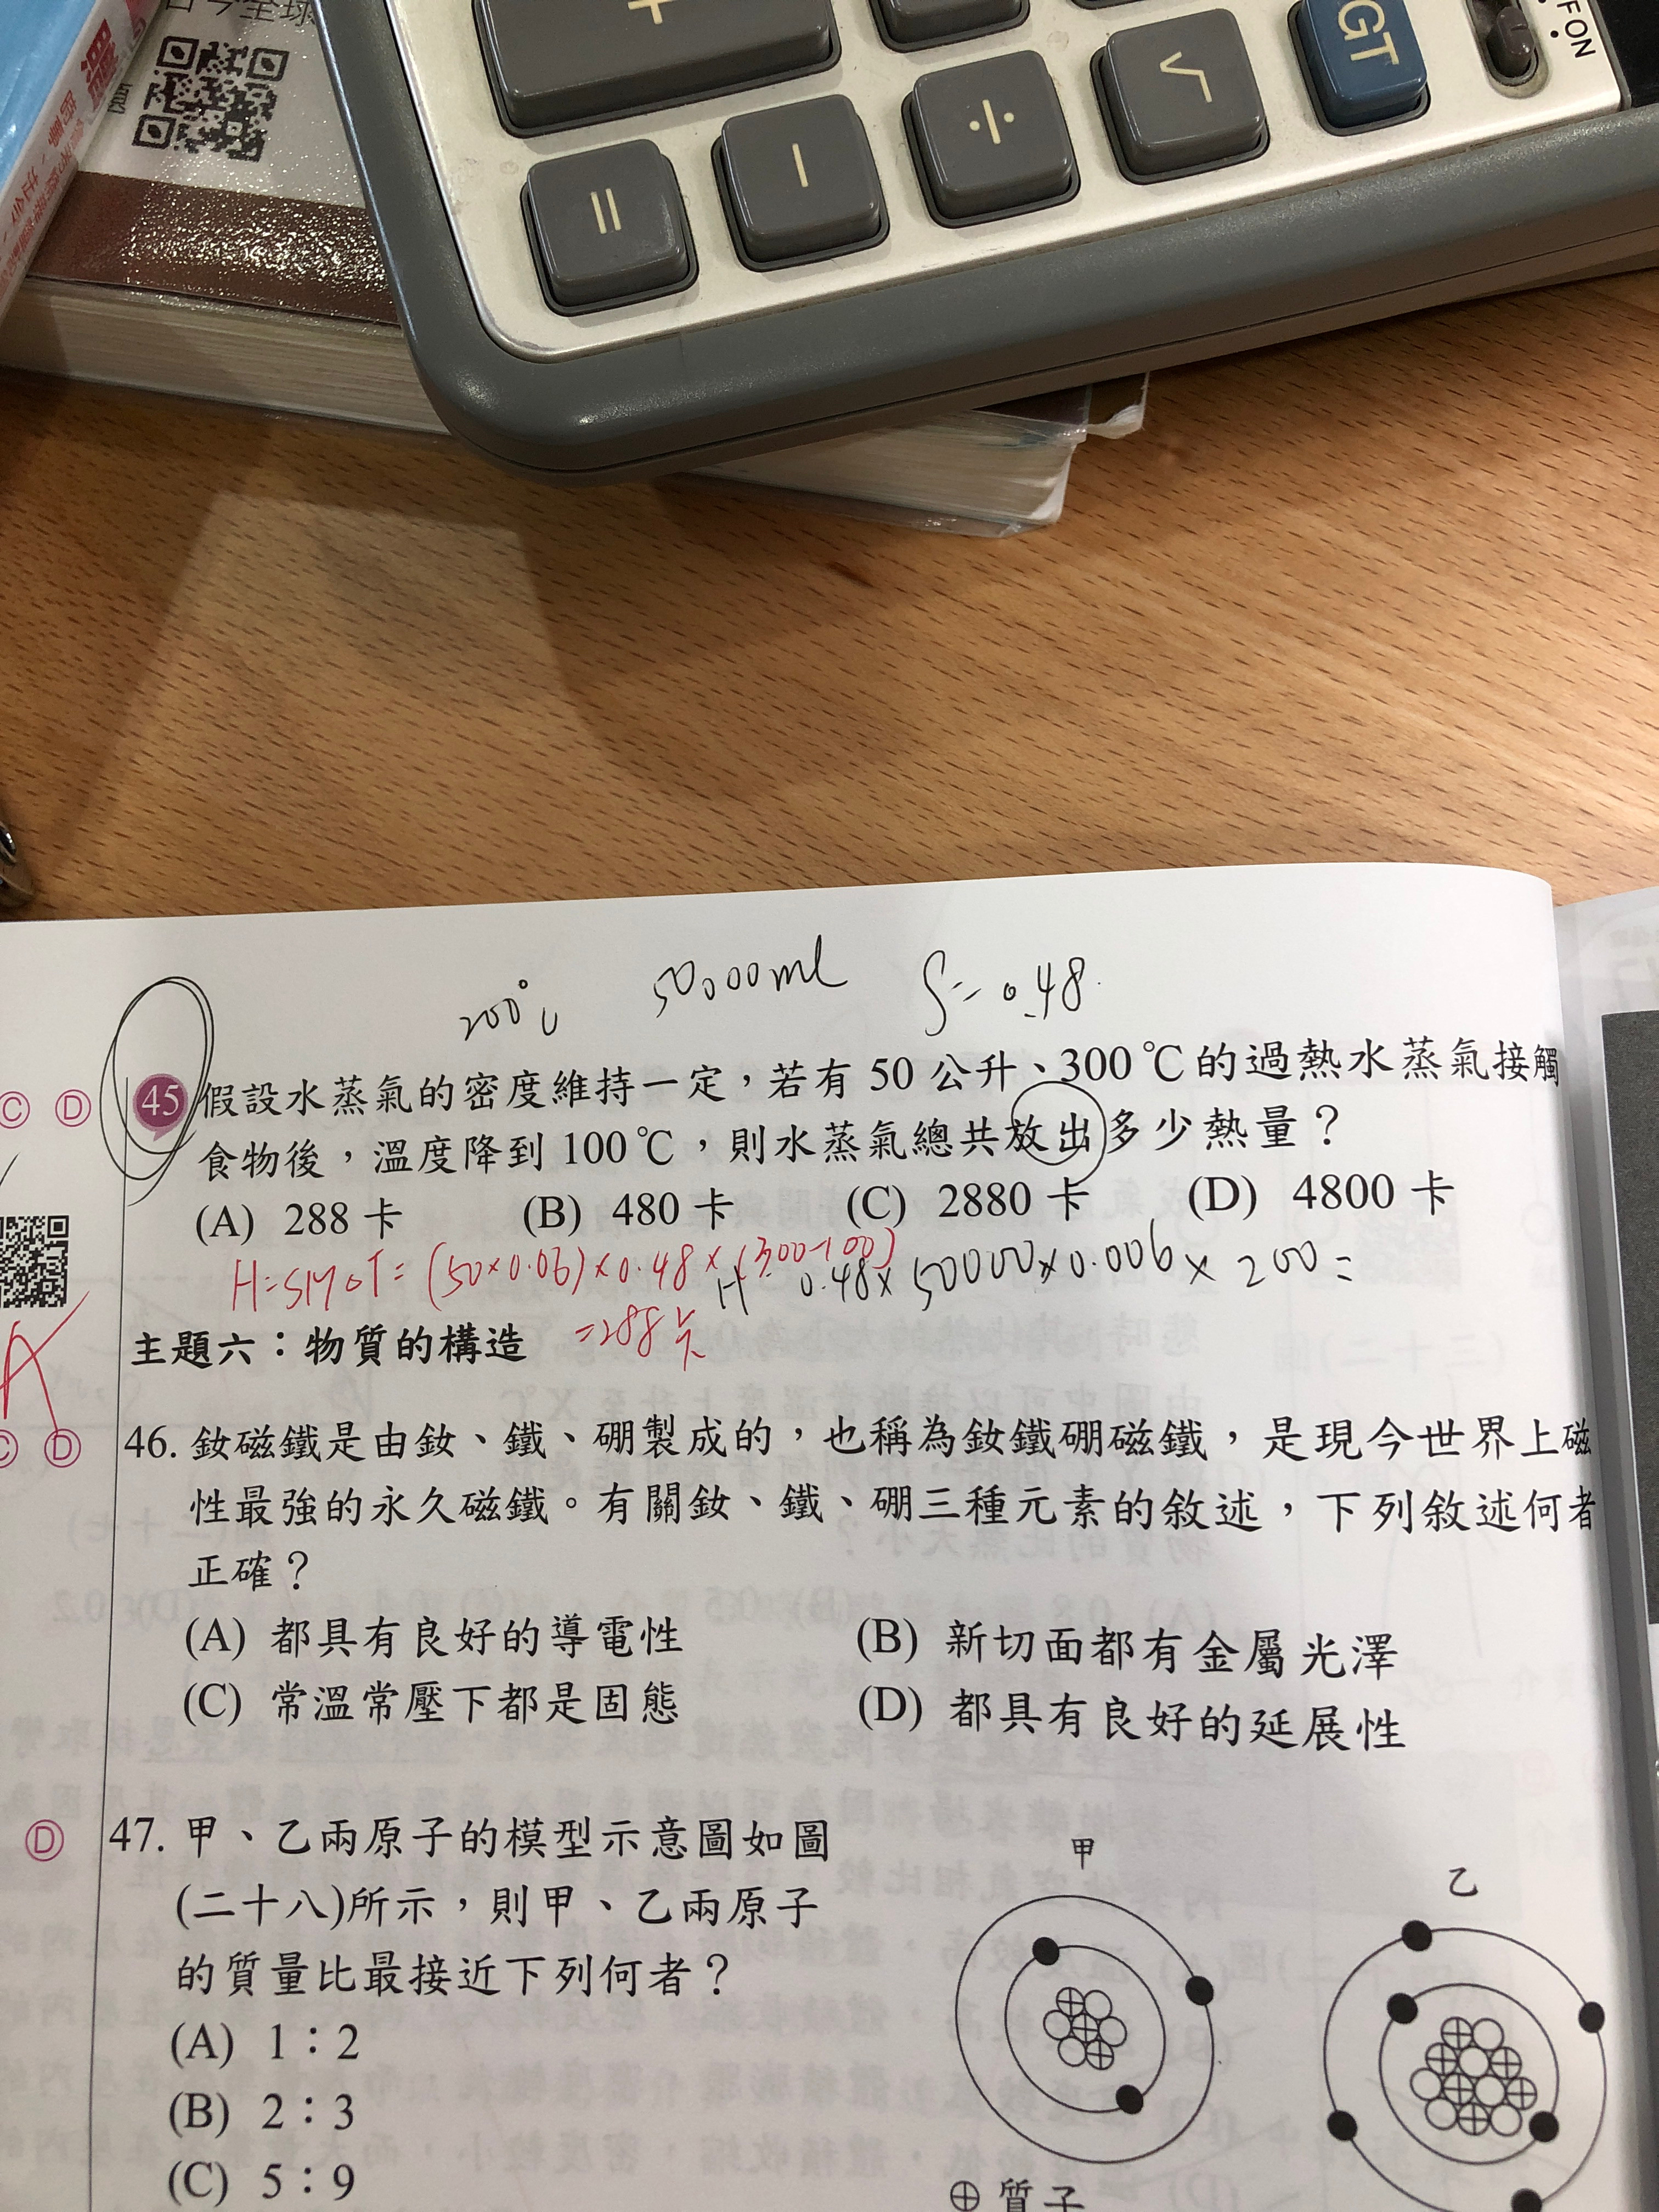 GT
FON
+
√
÷
−
=
200°C 50000ml S=0.48
45 假設水蒸氣的密度維持一定，若有 50 公升、300℃的過熱水蒸氣接觸
食物後，溫度降到 100℃，則水蒸氣總共放出多少熱量？
(A) 288 卡 (B) 480 卡 (C) 2880 卡 (D) 4800 卡
H=SM△T=(50×0.06)×0.48×(300-100)
=288卡
H= 0.48×50000×0.006×200=
Ⓒ Ⓓ
A
主題六：物質的構造
Ⓒ Ⓓ
46. 釹磁鐵是由釹、鐵、硼製成的，也稱為釹鐵硼磁鐵，是現今世界上磁
性最強的永久磁鐵。有關釹、鐵、硼三種元素的敘述，下列敘述何者
正確？
(A) 都具有良好的導電性 (B) 新切面都有金屬光澤
(C) 常溫常壓下都是固態 (D) 都具有良好的延展性
Ⓓ
47. 甲、乙兩原子的模型示意圖如圖
(二十八)所示，則甲、乙兩原子
的質量比最接近下列何者？
(A) 1：2
(B) 2：3
(C) 5：9
甲
乙
⊕ 質子